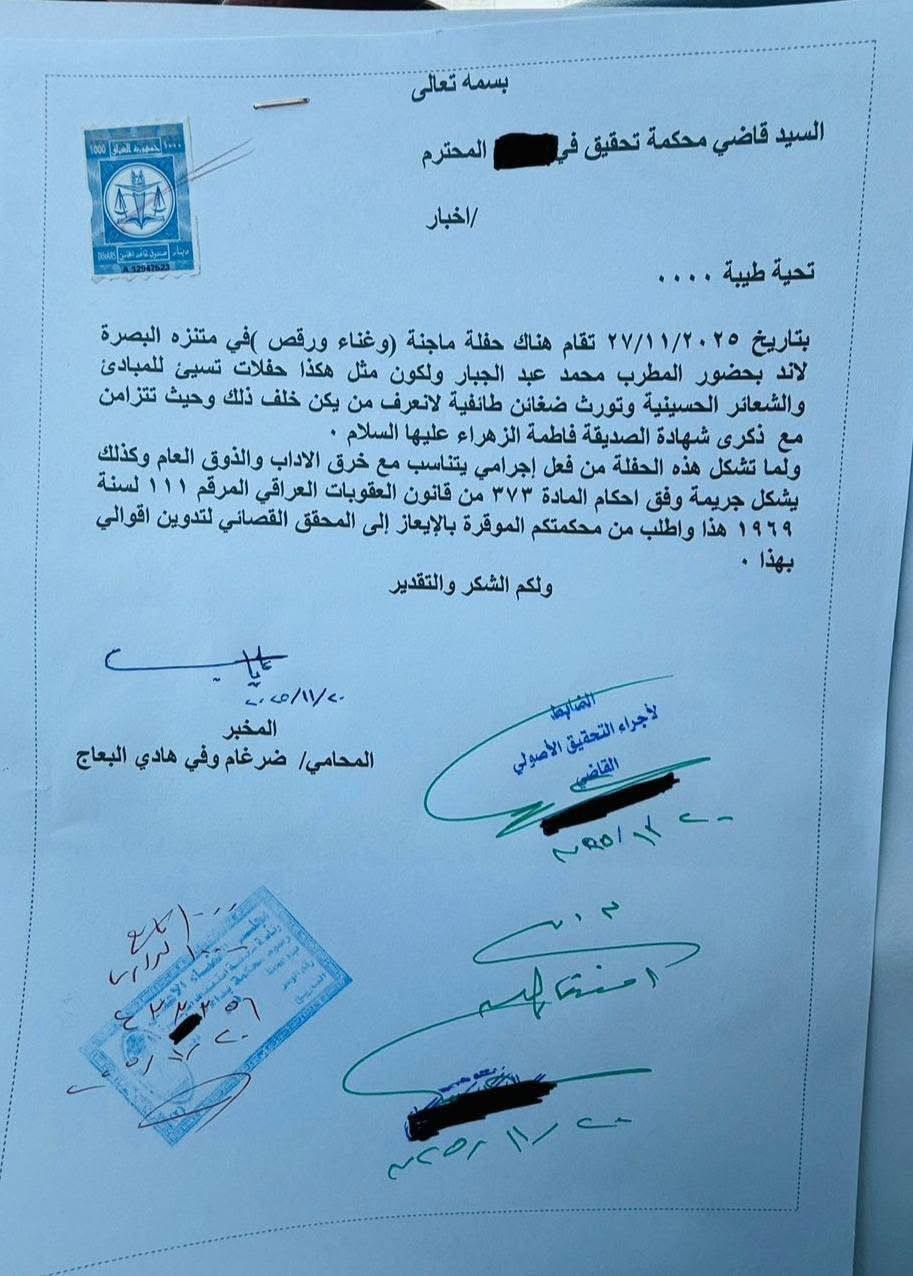 بسمه تعالى
السيد قاضي محكمة تحقيق في المحترم
/اخبار
١٠٠٠ جمهورية العراق 1000
دينار DINARS
A 12947623
تحية طيبة ٠٠٠٠
بتاريخ ٢٧/١١/٢٠٢٥ تقام هناك حفلة ماجنة (وغناء ورقص )في متنزه البصرة
لاند بحضور المطرب محمد عبد الجبار ولكون مثل هكذا حفلات تسيئ للمبادئ
والشعائر الحسينية وتورث ضغائن طائفية لانعرف من يكن خلف ذلك وحيث تتزامن
مع ذكرى شهادة الصديقة فاطمة الزهراء عليها السلام ٠
ولما تشكل هذه الحفلة من فعل إجرامي يتناسب مع خرق الاداب والذوق العام وكذلك
يشكل جريمة وفق احكام المادة ٣٧٣ من قانون العقوبات العراقي المرقم ١١١ لسنة
١٩٦٩ هذا واطلب من محكمتكم الموقرة بالإيعاز إلى المحقق القصائي لتدوين اقوالي
بهذا ٠
ولكم الشكر والتقدير
٢٠٢٥/١١/٢٠
المخبر
المحامي/ ضرغام وفي هادي البعاج
الضابط
لأجراء التحقيق الأصولي
القاضي
٢٠٢٥/١١/٢٠